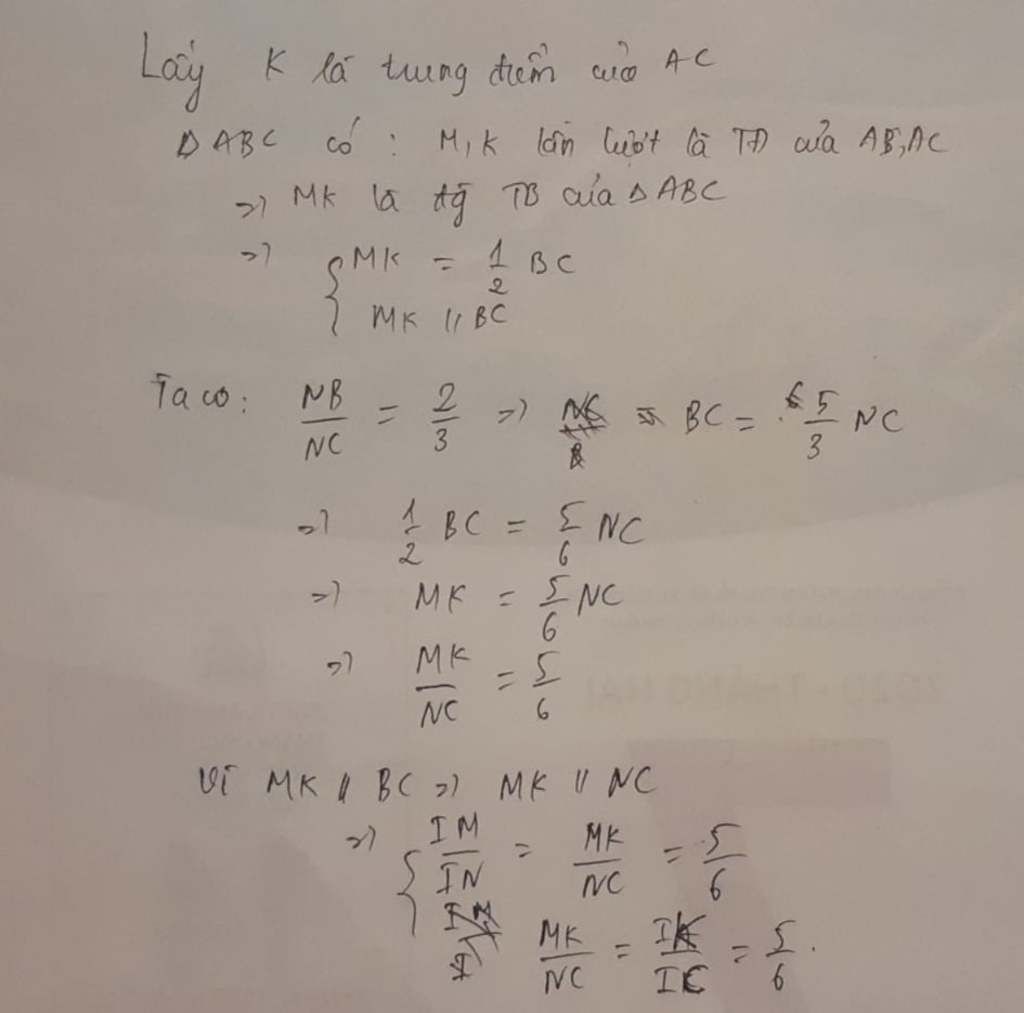 Lấy K là trung điểm của AC
Δ ABC có : M, K lần lượt là TĐ của AB, AC
=> MK là đg TB của Δ ABC
=> { MK = 1/2 BC
MK // BC
Ta có: NB/NC = 2/3 => BC = 5/3 NC
=> 1/2 BC = 5/6 NC
=> MK = 5/6 NC
=> MK/NC = 5/6
Vì MK // BC => MK // NC
=> { IM/IN = MK/NC = 5/6
MK/NC = IK/IC = 5/6.